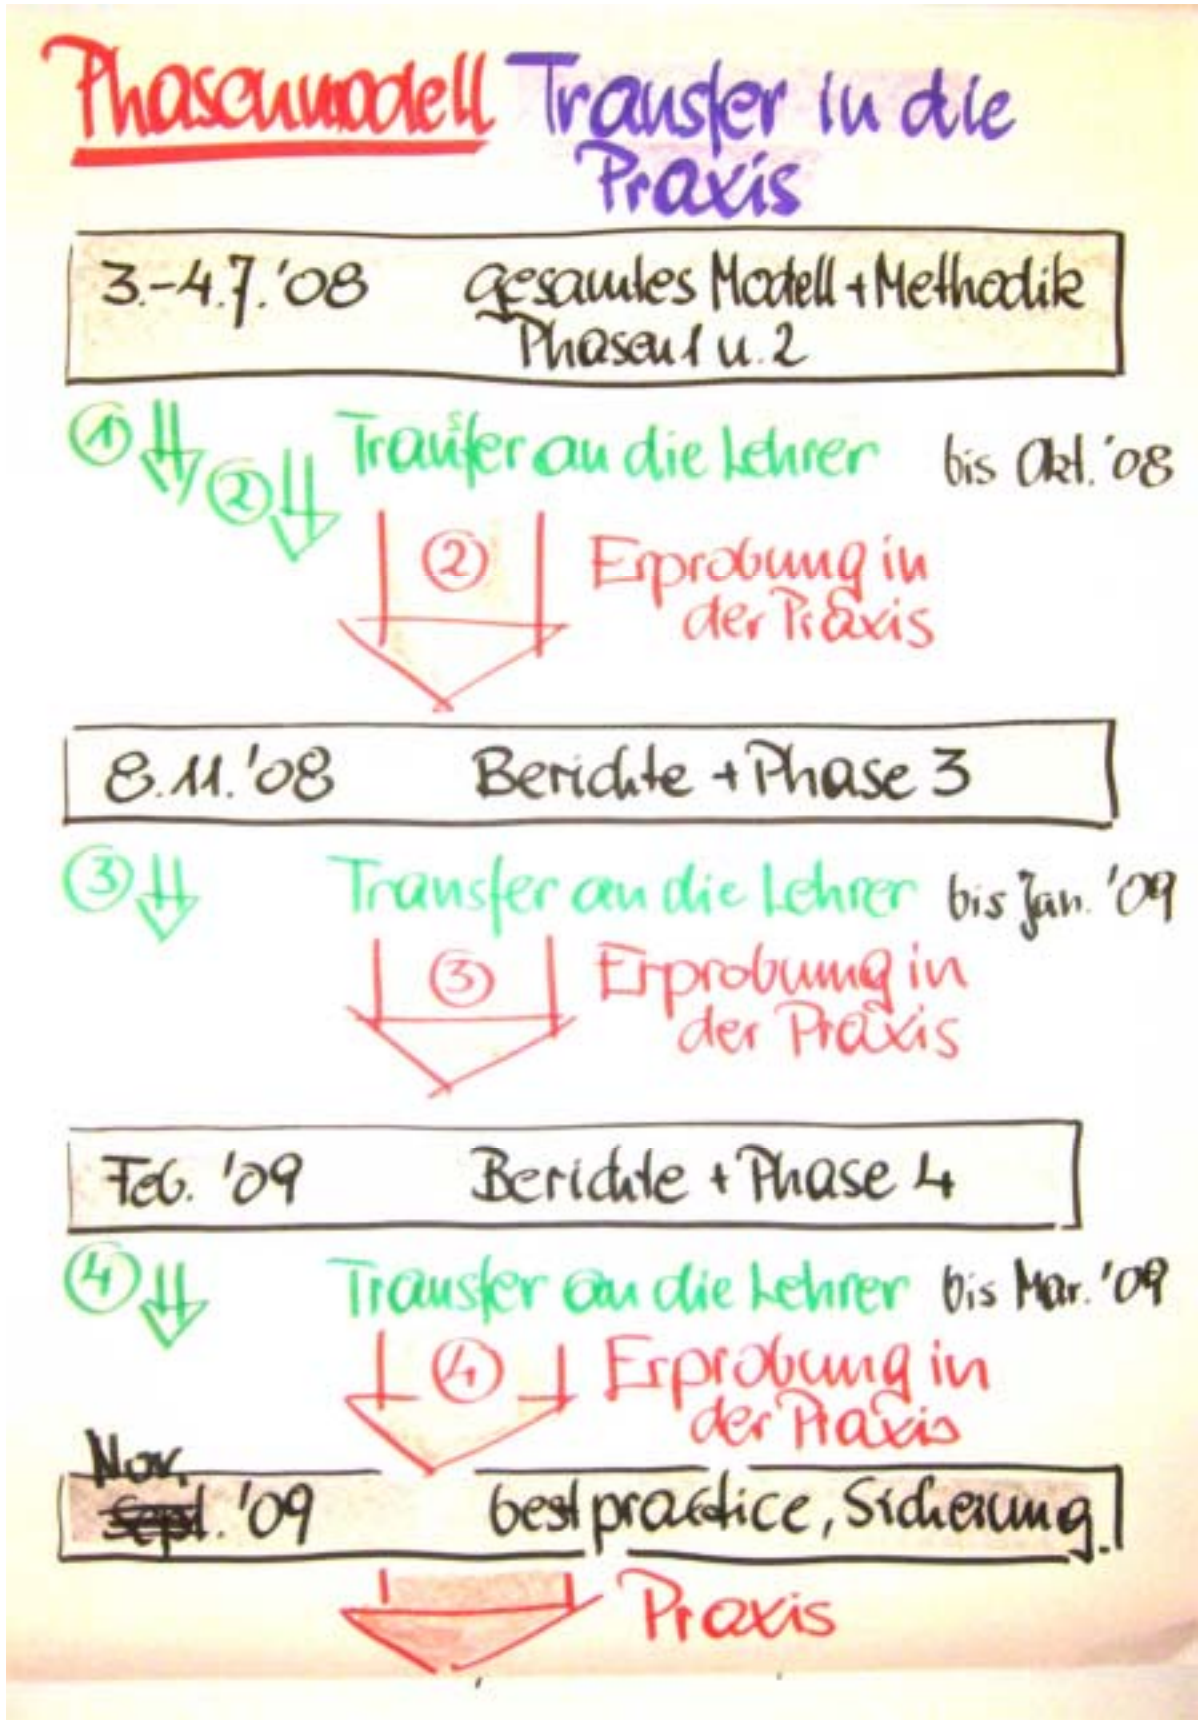 Phasenmodell Transfer in die
Praxis
3.-4.7.'08 gesamtes Modell + Methodik
Phasen 1 u. 2
① ② Transfer an die Lehrer bis Okt. '08
② Erprobung in
der Praxis
8.11.'08 Berichte + Phase 3
③ Transfer an die Lehrer bis Jan. '09
③ Erprobung in
der Praxis
Feb. '09 Berichte + Phase 4
④ Transfer an die Lehrer bis Mar. '09
④ Erprobung in
der Praxis
Nov.
Sept. '09 best practice, Sicherung
Praxis